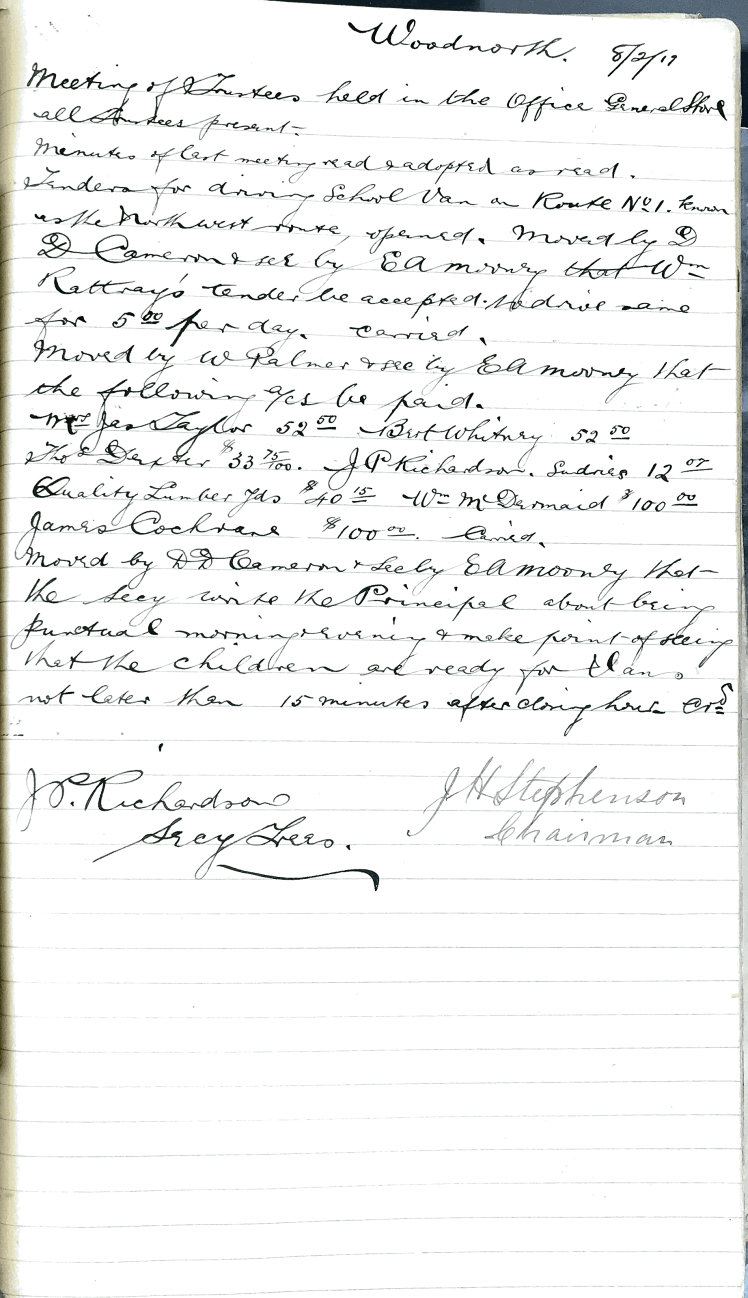 Woodnorth. 8/2/17
Meeting of Trustees held in the Office General Store
all trustees present –
Minutes of last meeting read & adopted as read.
Tenders for driving School Van on Route No 1. known
as the North west route, opened. Moved by D
D Cameron & sec by E A Mooney that Wm
Rattray's tender be accepted to drive same
for 5 00 per day. Carried.
Moved by W Palmer & sec by E A Mooney that
the following a/cs be paid.
Mrs Jas Taylor 52 50 Bert Whitney 52 50
Thos Dexter $33 75/100. J P Richardson. Sudries 12 07
Quality Lumber Yds $40 15 Wm McDermaid $100 00
James Cochrane $100 00. Carried.
Moved by D D Cameron & sec by E A Mooney that
the secy write the Principal about being
punctual morning & evening & make point of seeing
that the children are ready for Van
not later than 15 minutes after closing hour Crd
J P. Richardson J H Stephenson
Secy Treas. Chairman